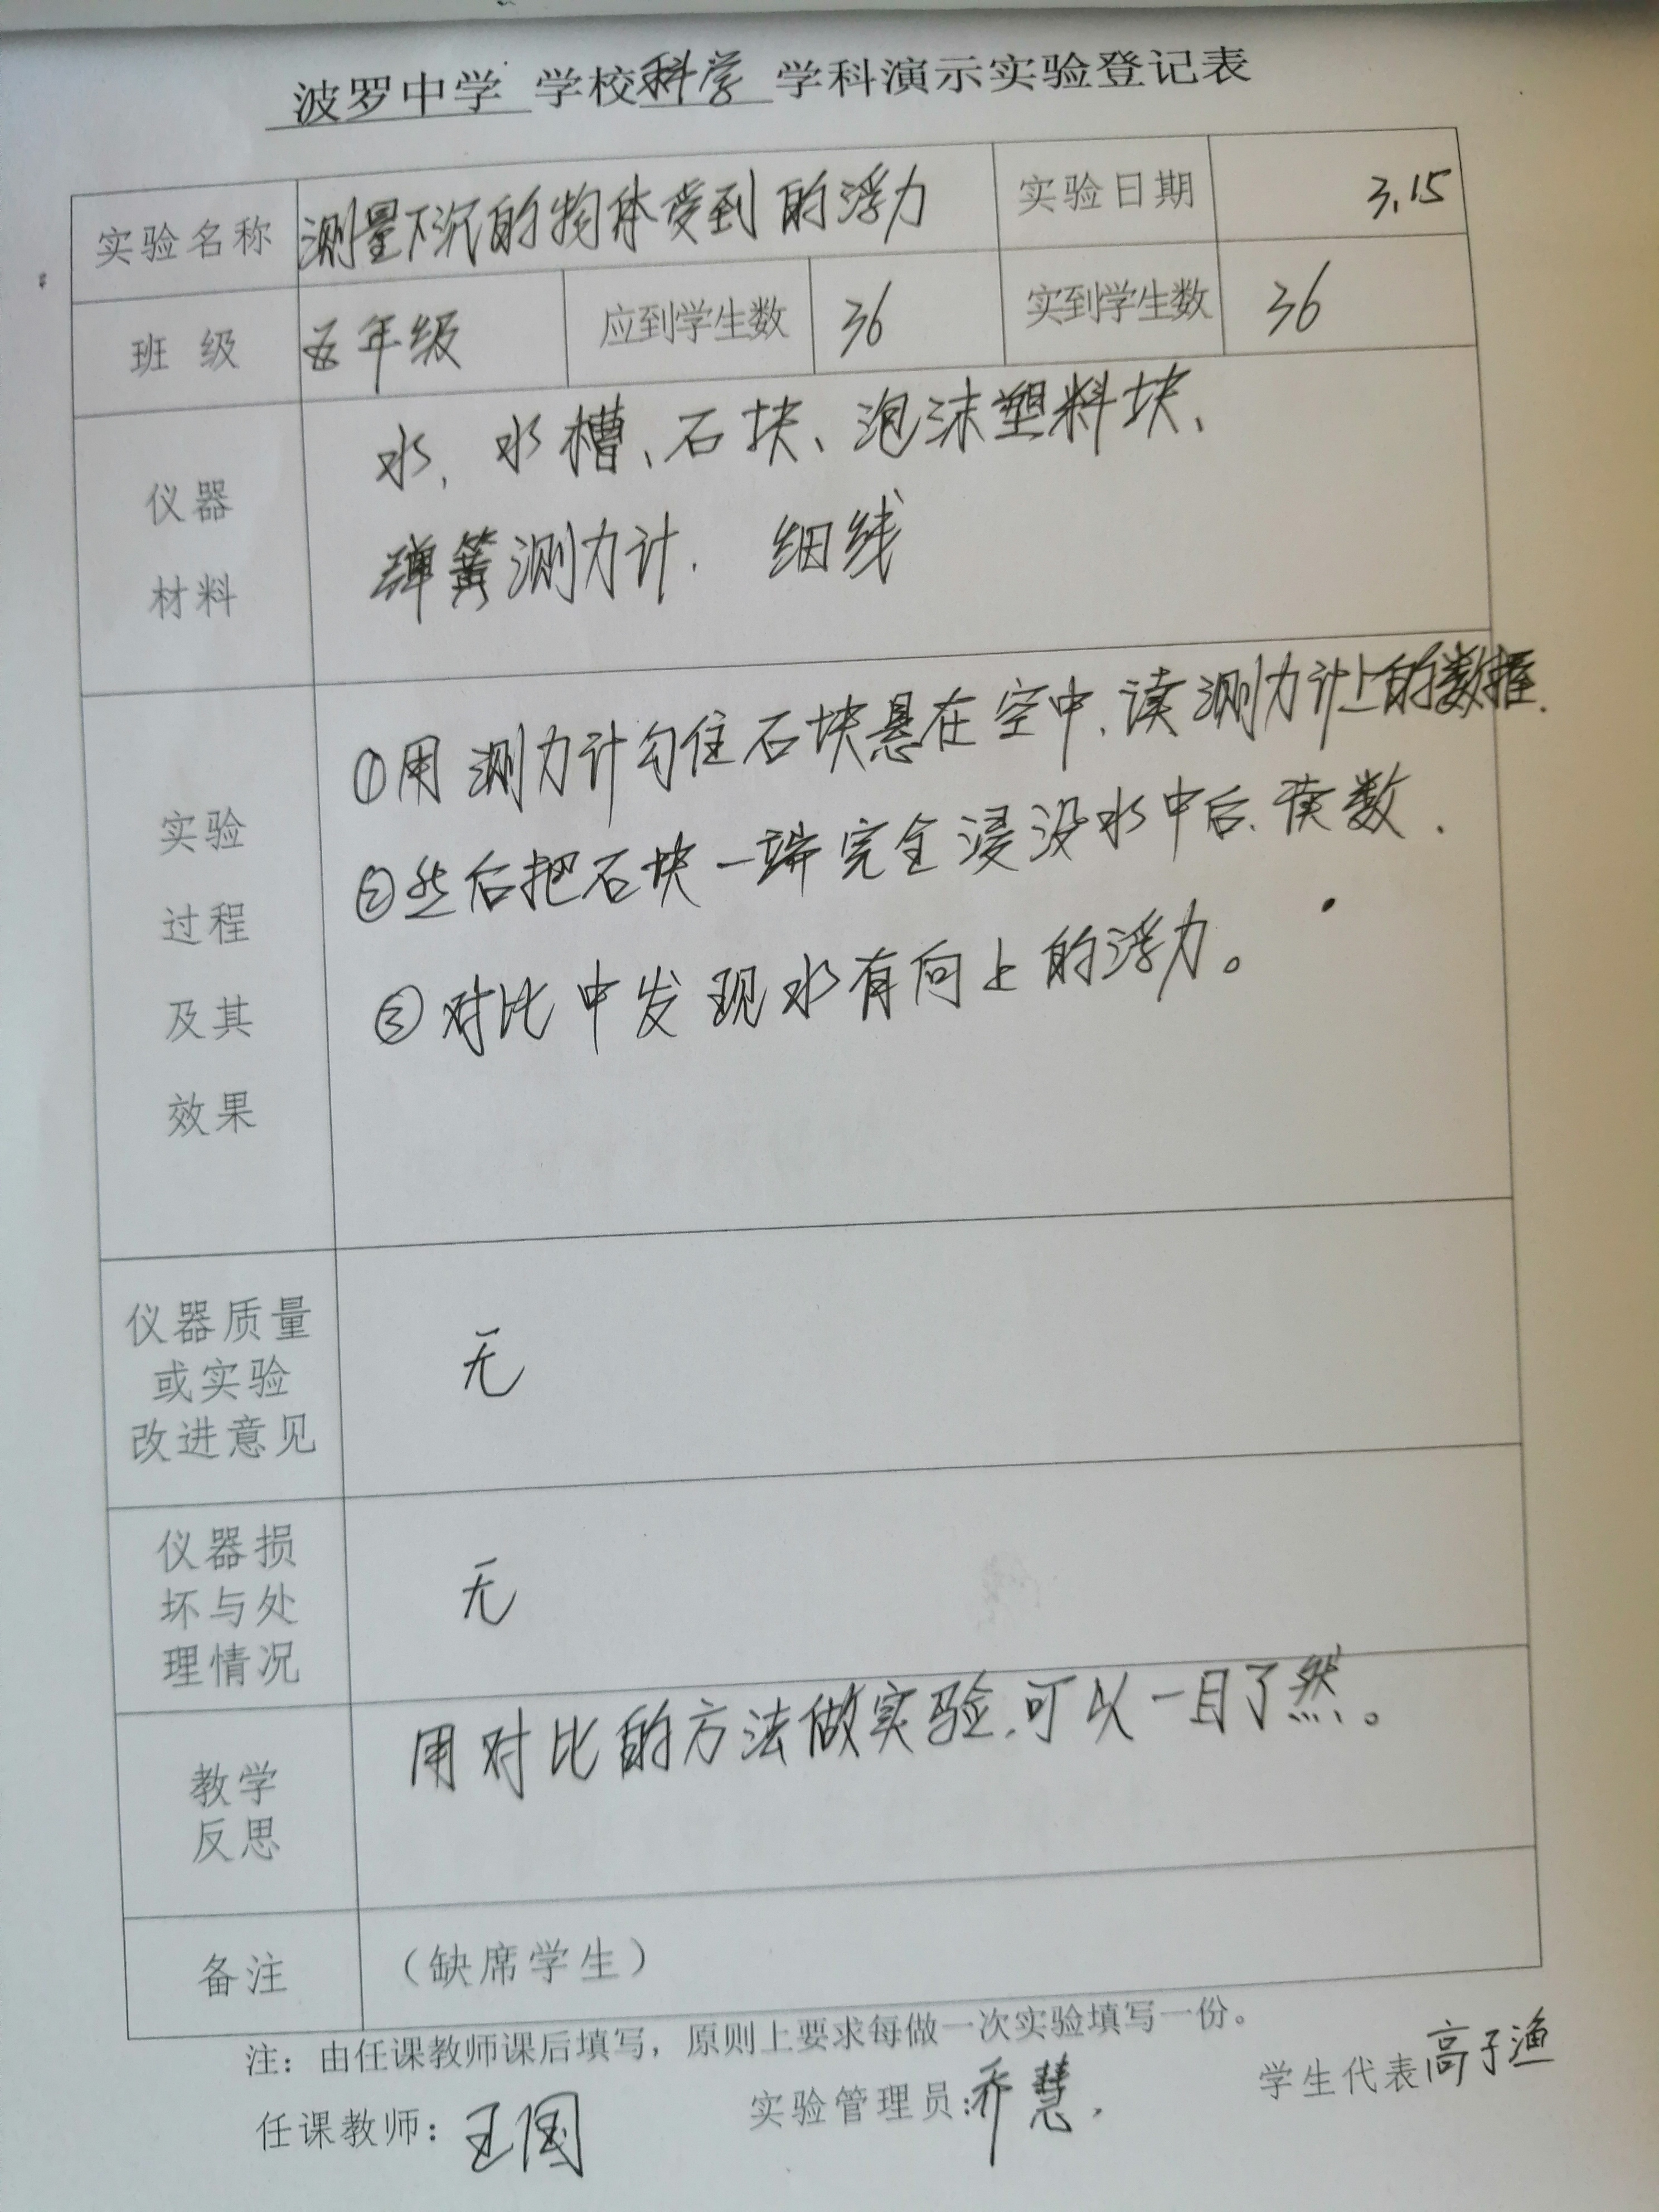 波罗中学 学校科学 学科演示实验登记表
实验名称 测量下沉的物体受到的浮力 实验日期 3.15
班 级 五年级 应到学生数 36 实到学生数 36
仪器
材料
水、水槽、石块、泡沫塑料块、
弹簧测力计. 细线
实验
过程
及其
效果
①用测力计勾住石块悬在空中、读测力计上的数据.
②然后把石块一端完全浸没水中后、读数.
③对比中发现水有向上的浮力。
仪器质量
或实验
改进意见
无
仪器损
坏与处
理情况
无
教学
反思
用对比的方法做实验,可以一目了然。
备注 （缺席学生）
注：由任课教师课后填写，原则上要求每做一次实验填写一份。
任课教师：王国 实验管理员:乔慧. 学生代表高子渔